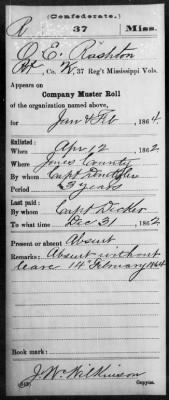 (Confederate.)
R 37 Miss.
O. E. Rashton
Pvt, Co. K, 37 Reg't Mississippi Vols.
Appears on
Company Muster Roll
of the organization named above,
for Jan & Feb, 1864.
Enlisted:
When Apr 12, 1862.
Where Jones County
By whom Capt
Period 3 years
Last paid:
By whom Capt Decker
To what time Dec 31, 1862.
Present or absent Absent
Remarks: Absent without
leave 14" February 1864
Book mark:
J. W. Wilkinson
(642) Copyist.